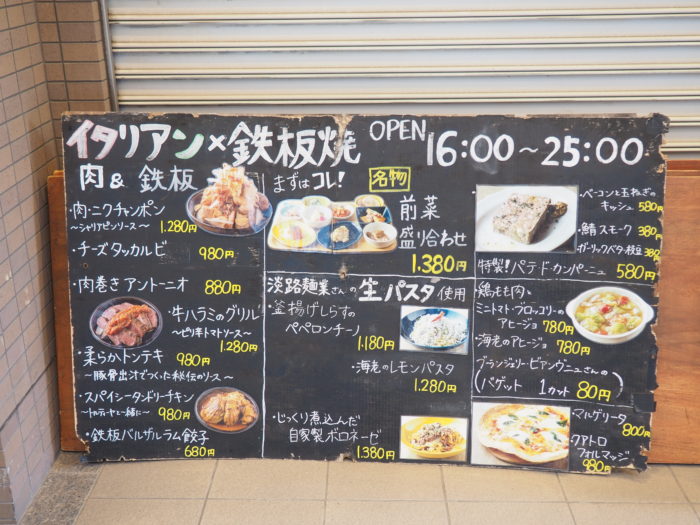 イタリアン×鉄板焼
OPEN 16:00～25:00
肉 & 鉄板
・肉・ニクチャンポン
～シャリアピンソース～ 1.280円
・チーズタッカルビ 980円
・肉巻き アントーニオ 880円
・牛ハラミのグリル
～ピリ辛トマトソース～ 1.280円
・柔らかトンテキ 980円
～豚骨出汁でつくった秘伝のソース～
・スパイシータンドリーチキン
～トルティーヤと一緒に～ 980円
・鉄板バルザルラム餃子
680円
まずはコレ!
名物
前菜
盛り合わせ
1.380円
淡路麺業さんの 生パスタ使用
・釜揚げしらすの
ペペロンチーノ
1.180円
・海老のレモンパスタ
1.280円
・じっくり煮込んだ
自家製ボロネーゼ
1.380円
・ベーコンと玉ねぎの
キッシュ 580円
・鯖スモーク 380円
・ガーリックバター枝豆 380円
特製!パテドカンパーニュ 580円
・鶏もも肉・
ミニトマト・ブロッコリーの
アヒージョ 780円
・海老のアヒージョ 780円
ブランジェリー・ビアンヴニュさんの
バゲット 1カット 80円
マルゲリータ
800円
クアトロ
フォルマッジ
980円